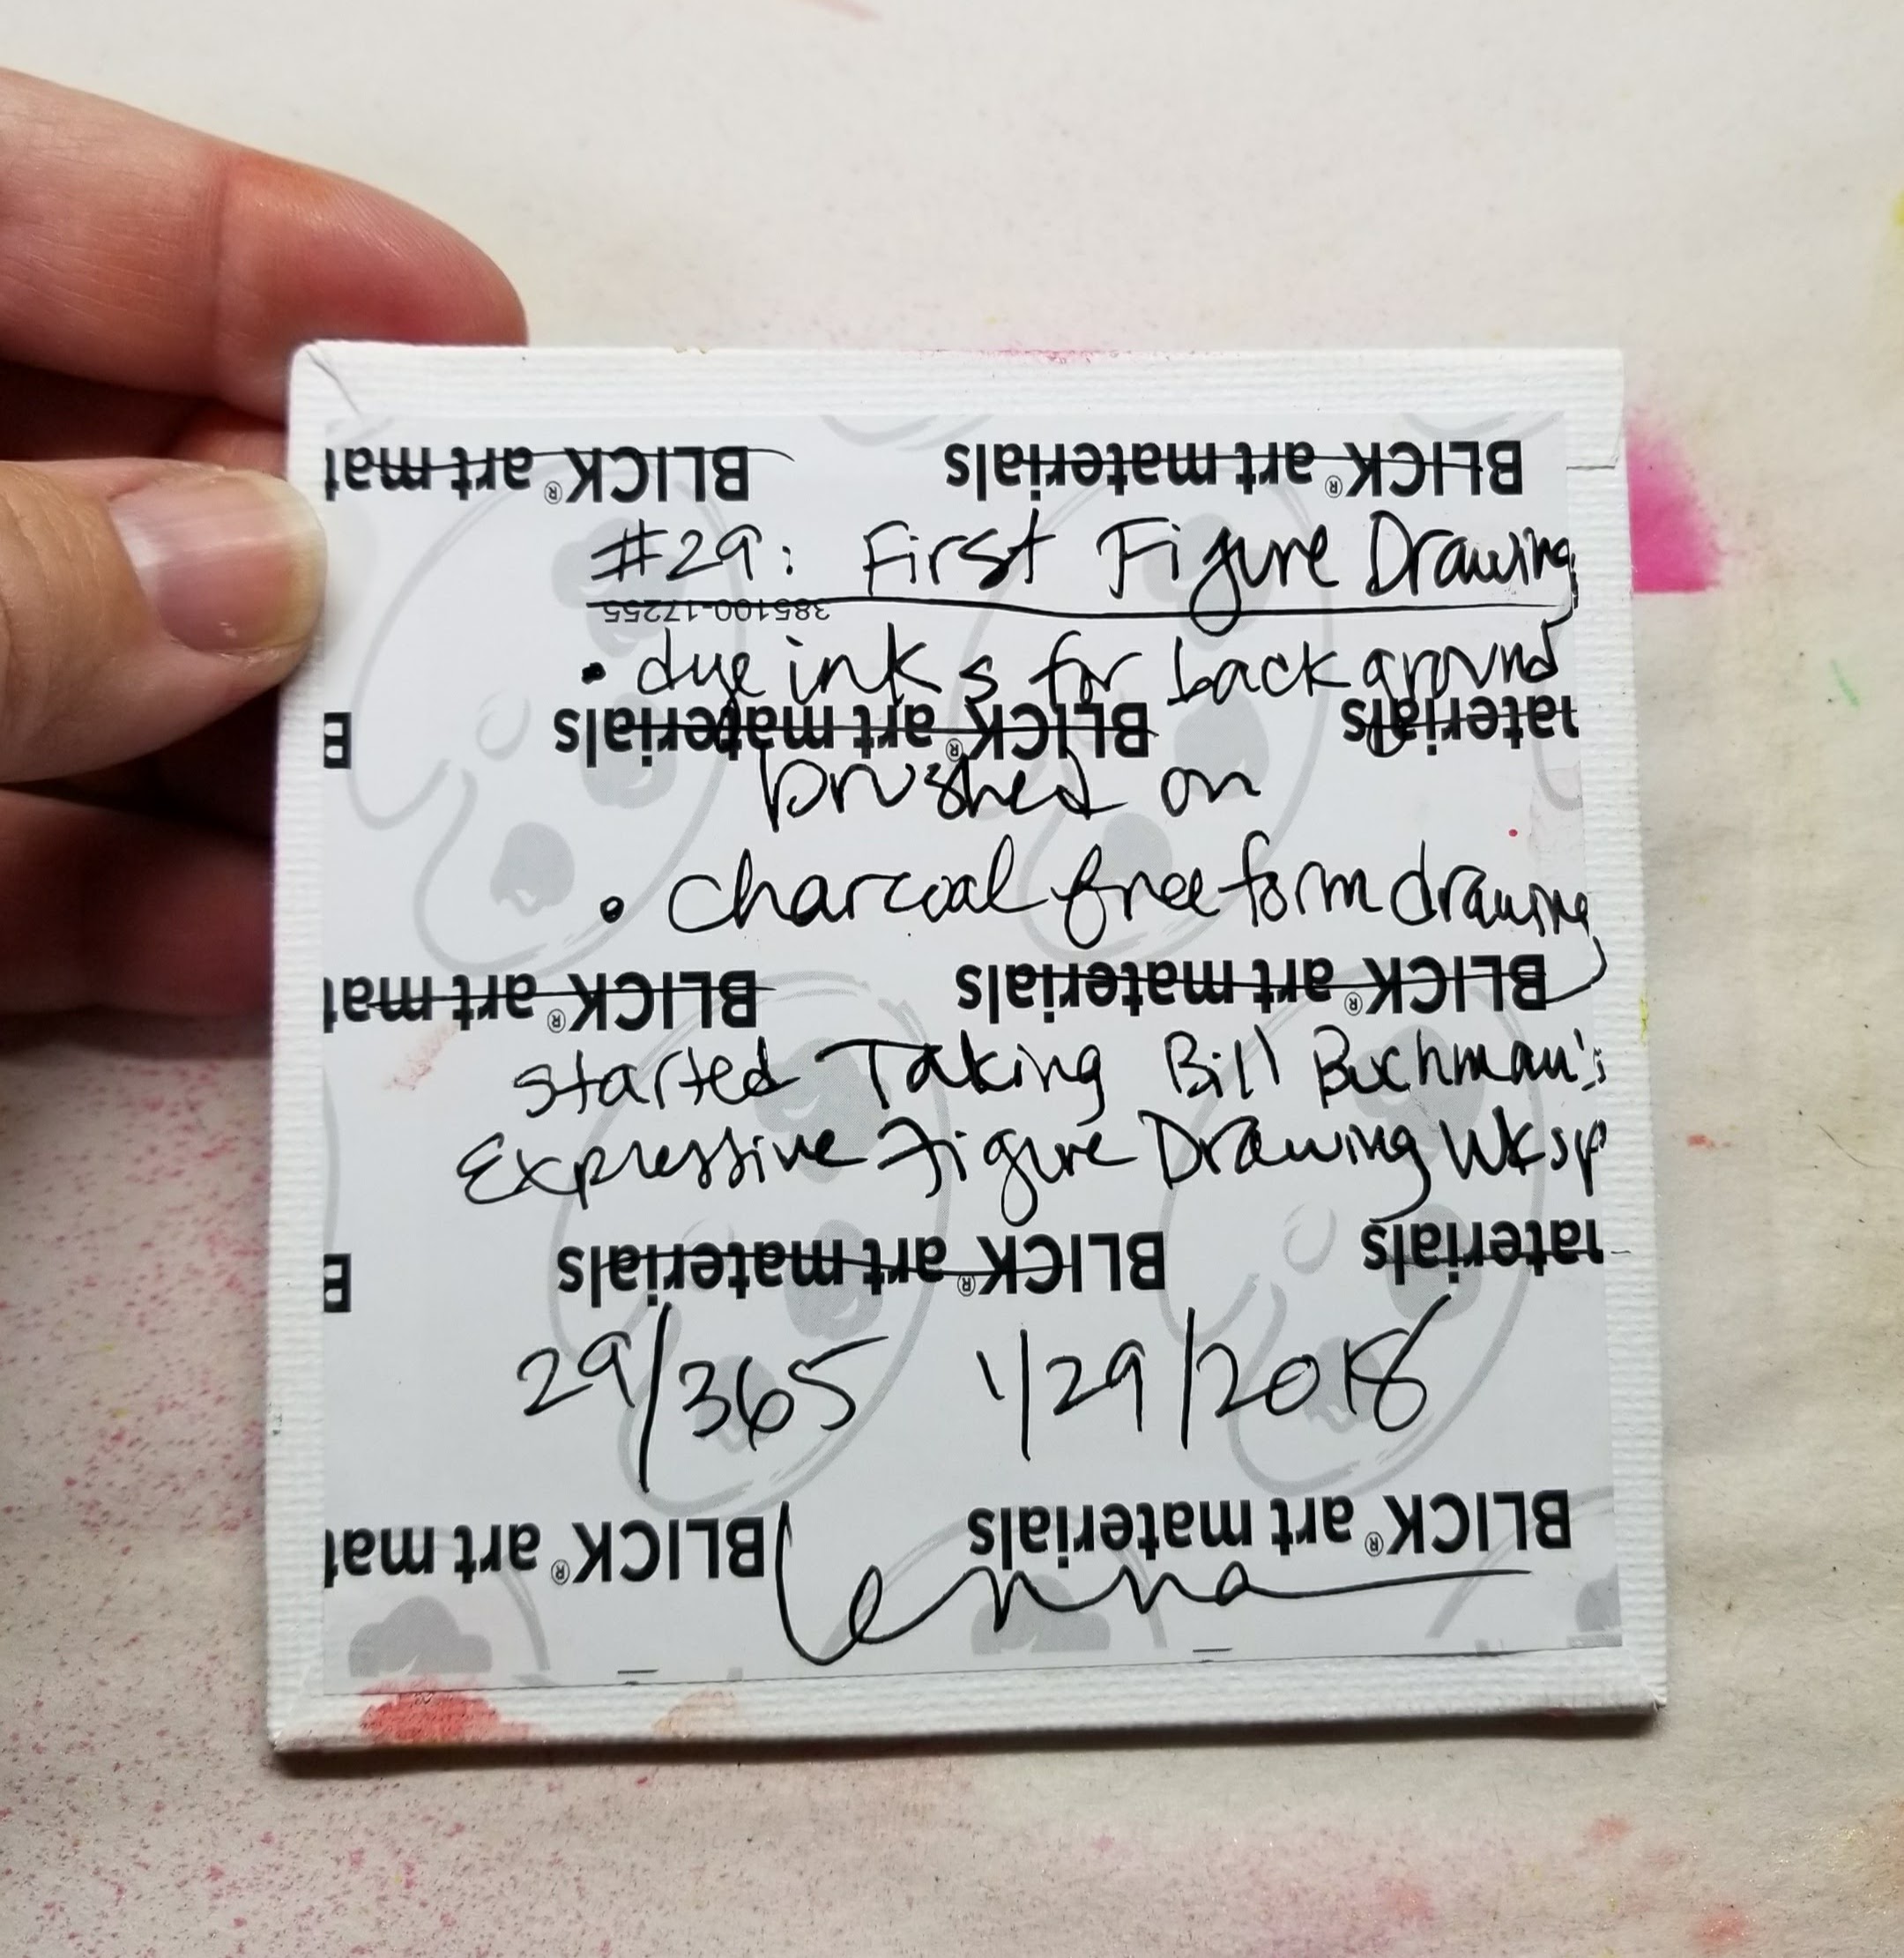 BLICK® art mat BLICK® art materials
#29: First Figure Drawing
385100-17255
• dye inks for background
B BLICK® art materials naterials
brushed on
• charcoal free form drawing
BLICK® art mat BLICK® art materials
started Taking Bill Buchman's
Expressive Figure Drawing Wksp
B BLICK® art materials naterials
29/365 1/29/2018
BLICK® art mat BLICK® art materials
Lenna